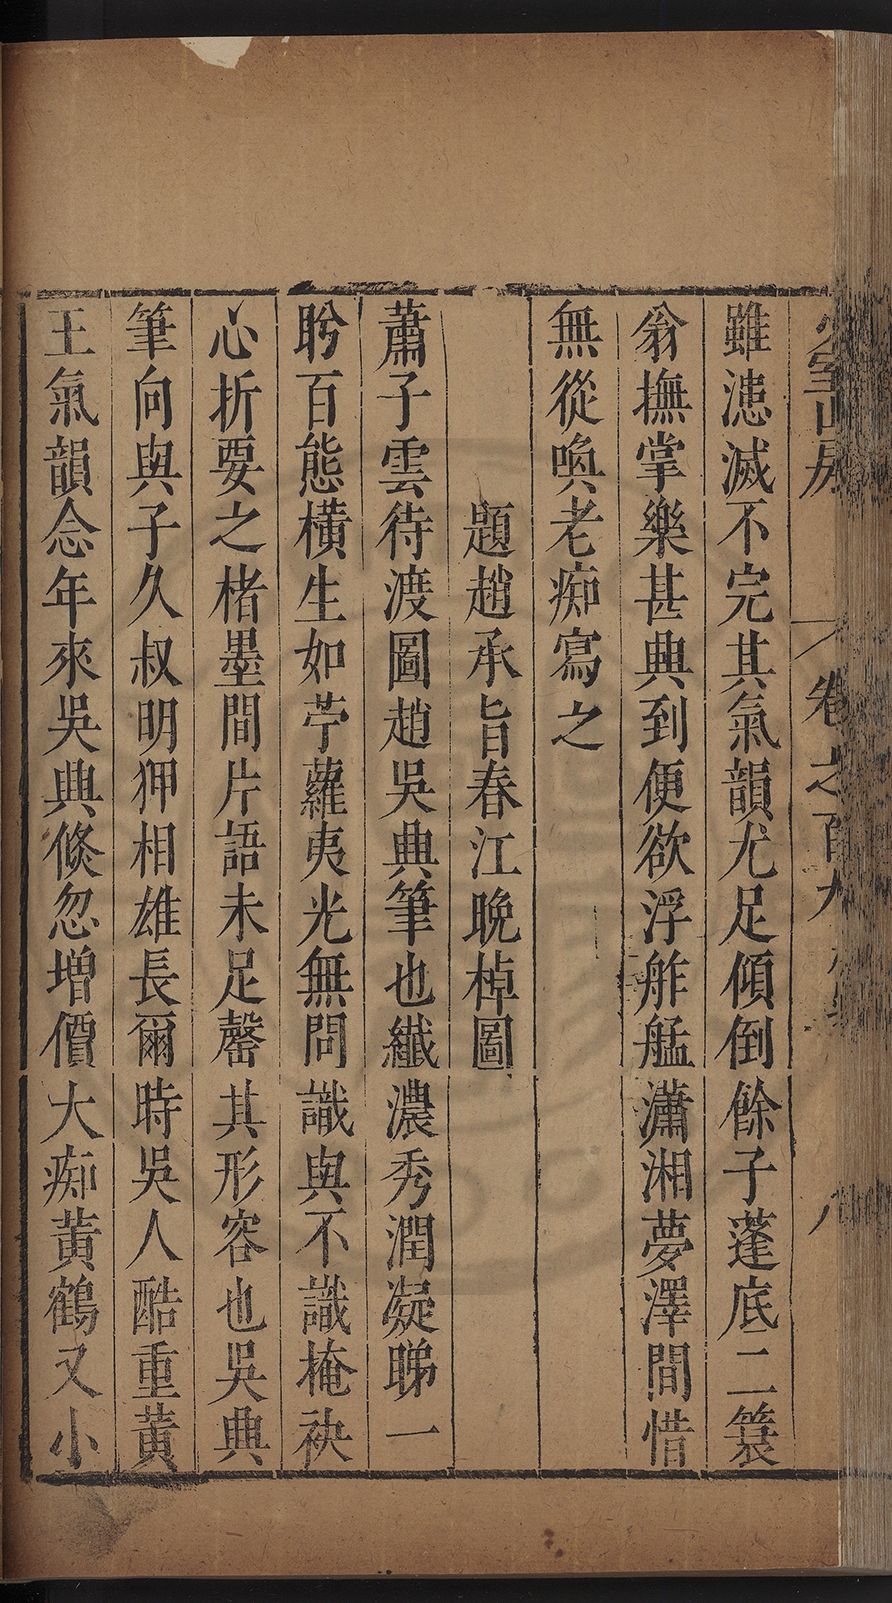 少室山房 卷之百九 八
雖漶滅不完其氣韻尤足傾倒餘子蓬底二簑
翁撫掌樂甚興到便欲浮舴艋瀟湘夢澤間惜
無從喚老痴寫之
題趙承旨春江晚棹圖
蕭子雲待渡圖趙吳興筆也纖濃秀潤凝睇一
盻百態橫生如苧蘿夷光無問識與不識掩袂
心折要之楮墨間片語未足罄其形容也吳興
筆向與子久叔明狎相雄長爾時吳人酷重黃
王氣韻念年來吳興倐忽增價大痴黃鶴又小